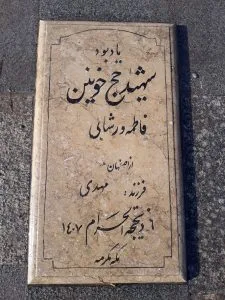 یادبود
شهید حج خونین
فاطمه ورشابی
فرزند: مهدی
۶ ذیحجة الحرام ۱۴۰۷
مکه مکرمه